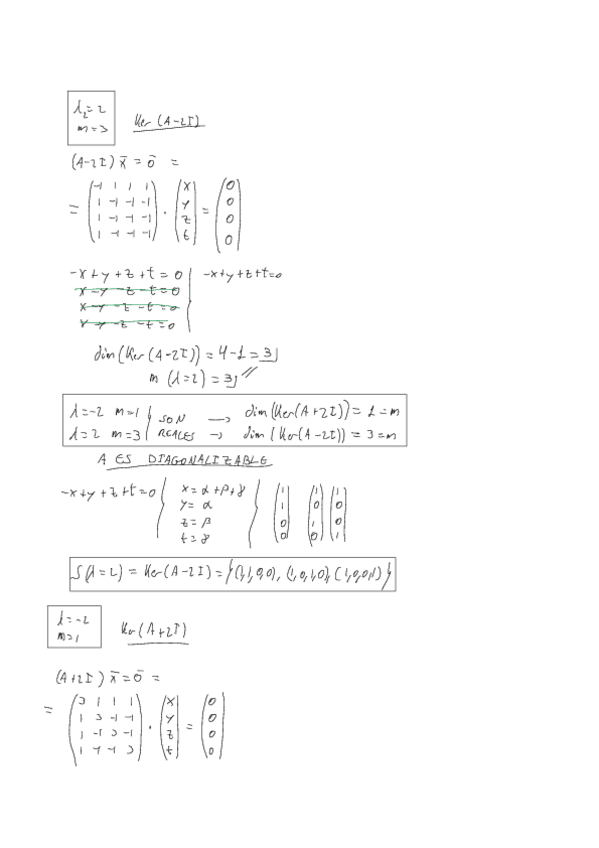 λ₂=2
m=3 Ker (A-2I)
(A-2I) x̄ = ō =
= (-1 1 1 1) (x) (0)
(1 -1 -1 -1) · (y) = (0)
(1 -1 -1 -1) (z) (0)
(1 -1 -1 -1) (t) (0)
-x+y+z+t=0 | -x+y+z+t=0
x-y-z-t=0
x-y-z-t=0
x-y-z-t=0
dim(Ker(A-2I))=4-1=3
m(λ=2)=3 //
λ=-2 m=1 | SON → dim(Ker(A+2I))=1=m
λ=2 m=3 | REALES → dim(Ker(A-2I))=3=m
A ES DIAGONALIZABLE
-x+y+z+t=0 { x=α+β+γ { (1) (1) (1)
y=α (1) (0) (0)
z=β (0) (1) (0)
t=γ (0) (0) (1)
S(λ=2) = Ker(A-2I) = {(1,1,0,0), (1,0,1,0), (1,0,0,1)}
λ=-2
m=1 Ker(A+2I)
(A+2I) x̄=ō =
= (3 1 1 1) (x) (0)
(1 3 -1 -1) · (y) = (0)
(1 -1 3 -1) (z) (0)
(1 -1 -1 3) (t) (0)